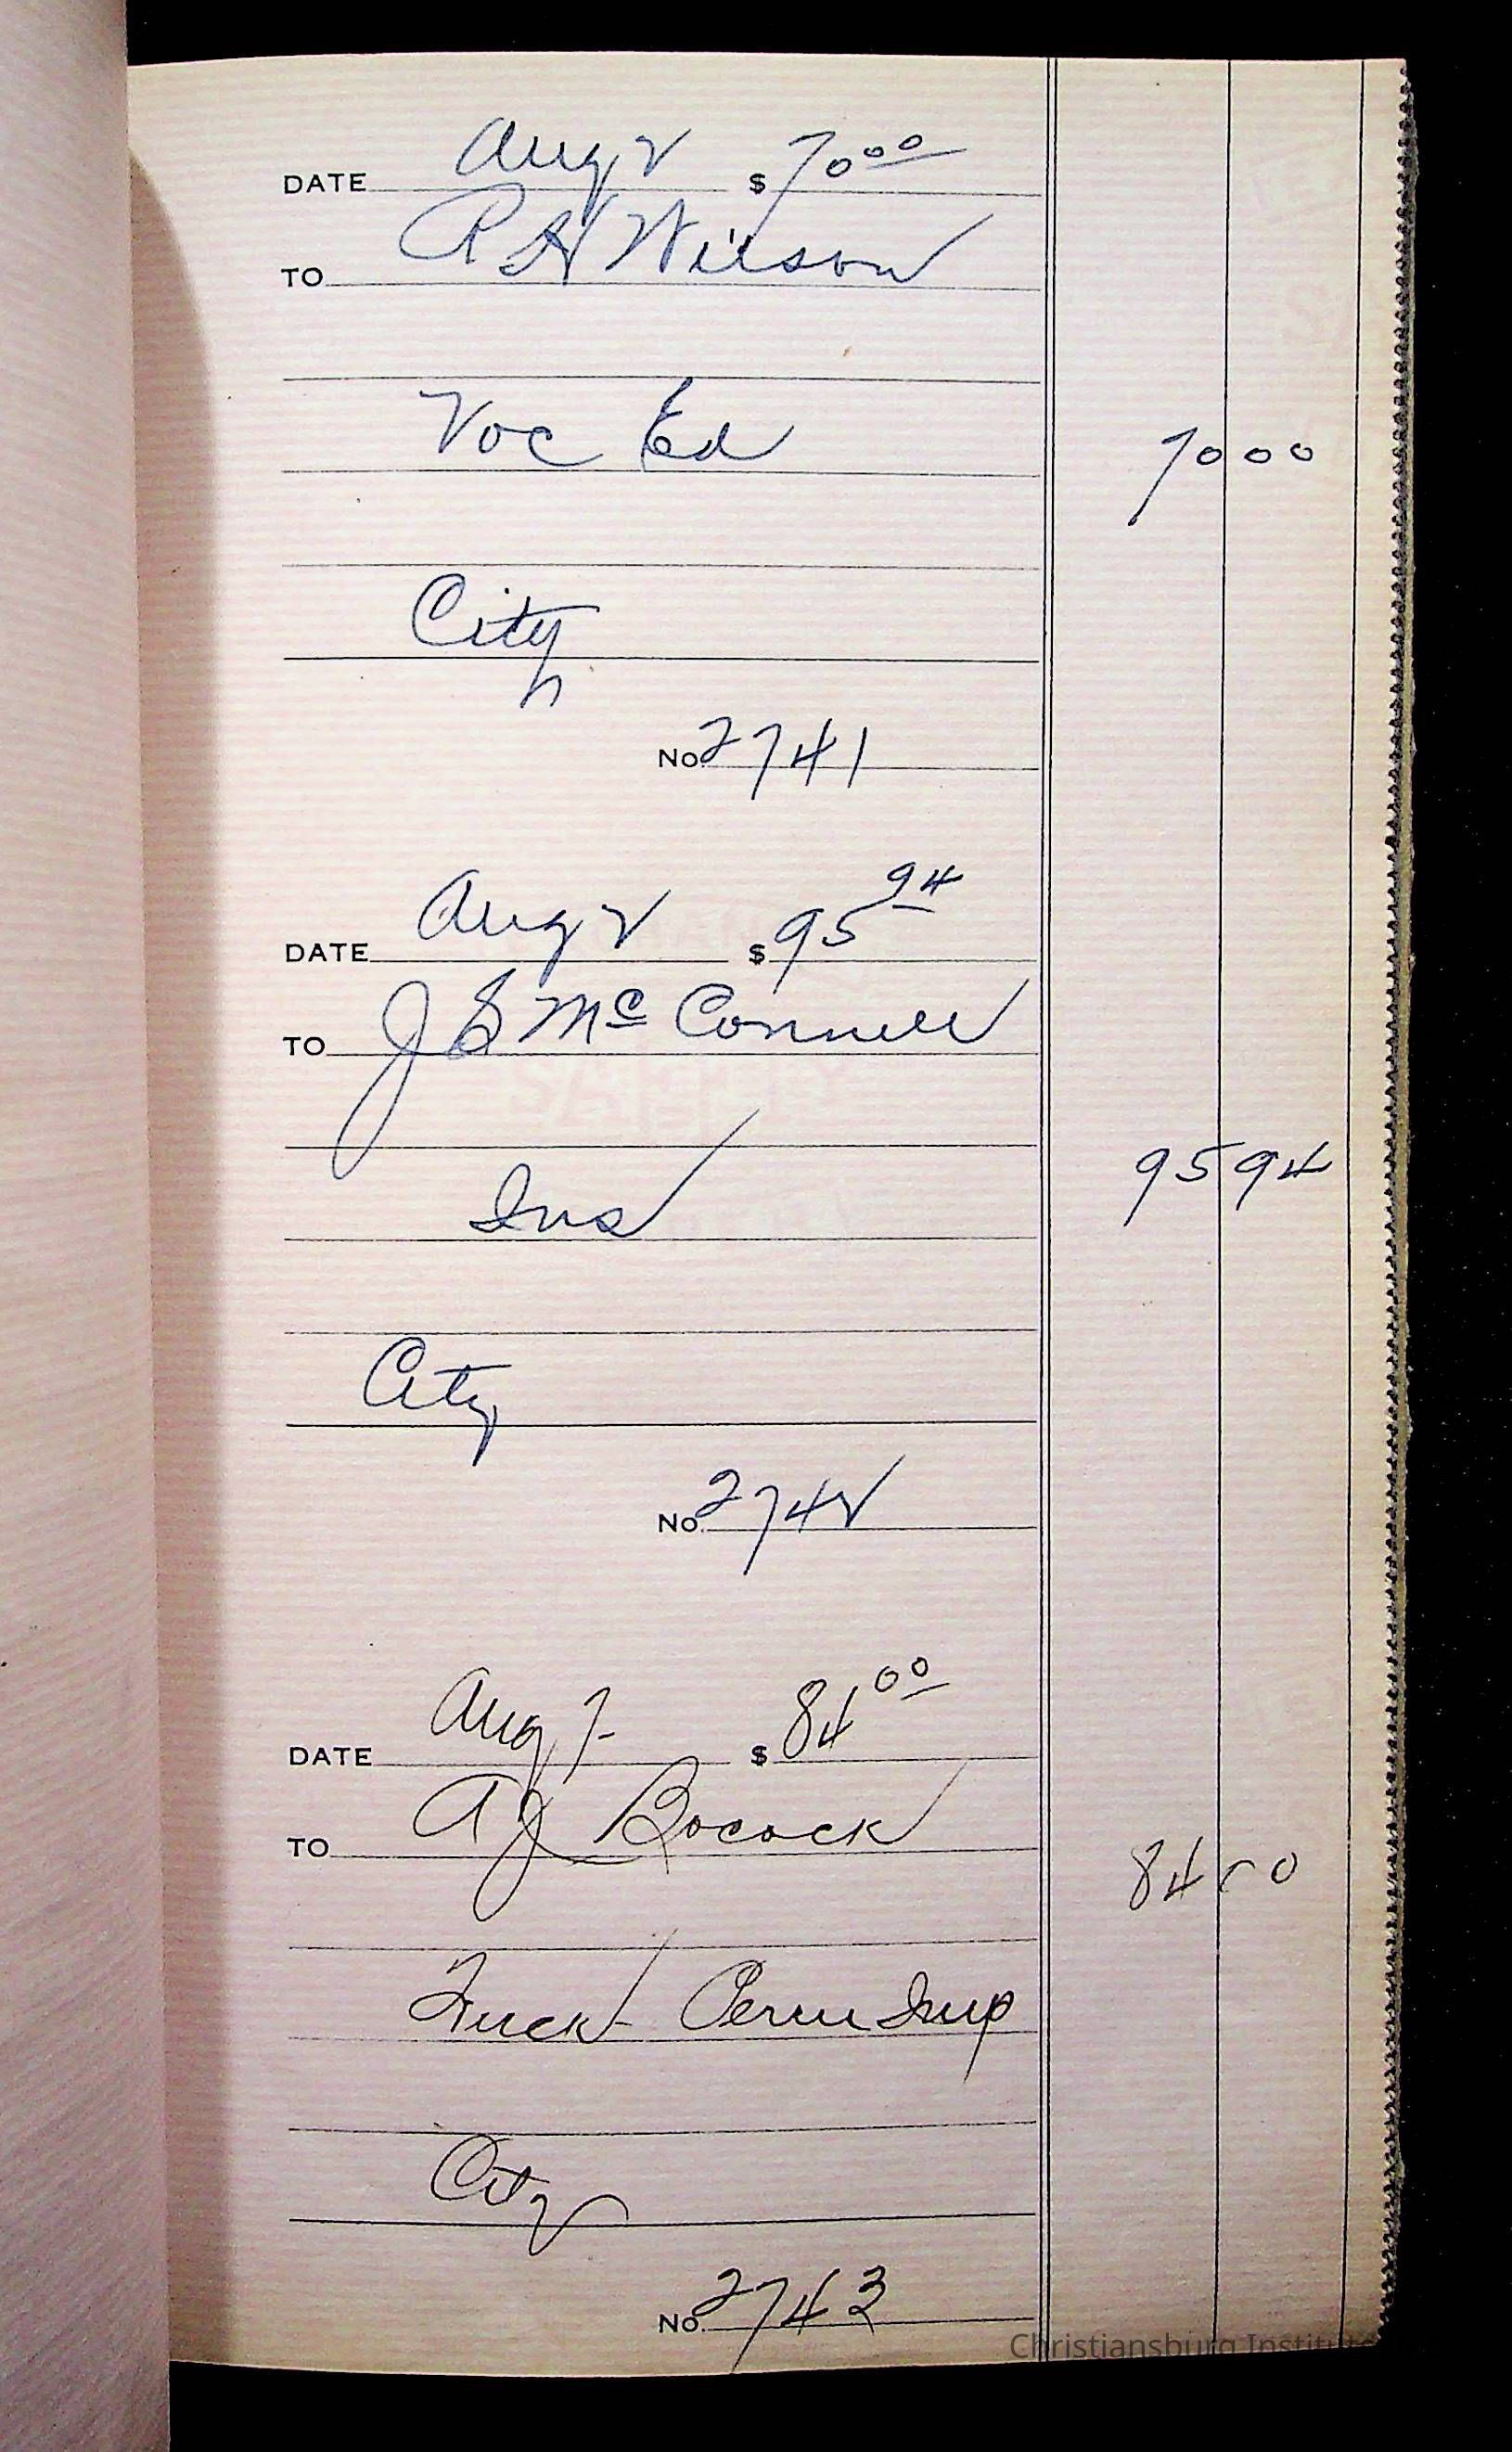 DATE Aug 2 $ 70 00
TO R H Wilson
Voc Ed 70 00
City
No. 2741
DATE Aug 2 $ 95 94
TO J S McConnell
Ins 95 94
City
No. 2742
DATE Aug 7 $ 84 00
TO A J Bocock
84 00
Truck Perm Imp
City
No. 2743
SAFETY
Christiansburg Institute